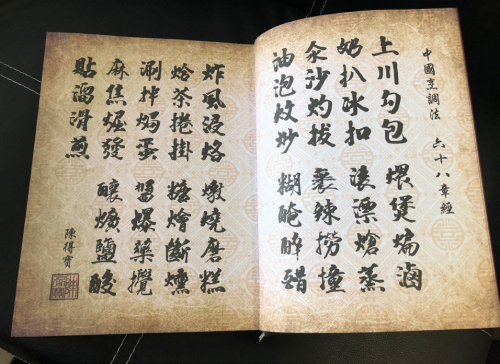 中國烹調法 六十八章經
上川勺包 煨煲煸滷
奶扒冰扣 滾漂熗蒸
汆沙灼拔 裹辣撈撞
油泡炆炒 糊醃醉醋
炸風浸烙 燉燒磨糕
烚茶捲掛 糖燴斷燻
涮拌焗蛋 醬爆藥攪
麻焦煀發 釀鹽酸
貼溜滑煎
陳得